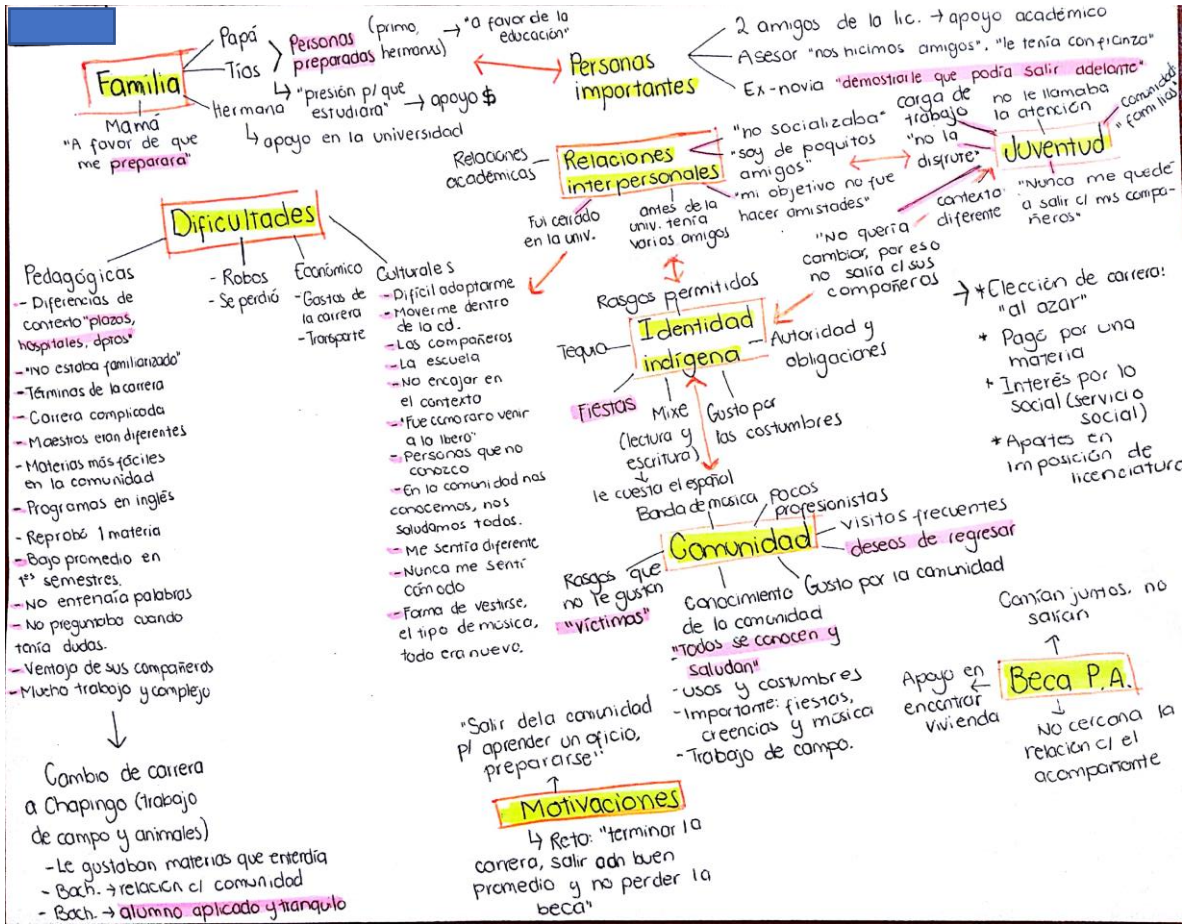 Familia
Papá
Tíos
Personas
preparadas
(primo,
hermanos)
→ "a favor de la
educación"
↳ "presión p/ que
estudiara" → apoyo $
Hermana
↳ apoyo en la universidad
Mamá
"A favor de que
me preparara"
Personas
importantes
2 amigos de la lic. → apoyo académico
Asesor "nos hicimos amigos". "le tenía confianza"
Ex-novia "demostrarle que podía salir adelante"
Relaciones
interpersonales
Relaciones
académicas
"no socializaba"
"soy de poquitos
amigos"
"mi objetivo no fue
hacer amistades"
Fui cerrado
en la univ.
antes de la
univ. tenía
varios amigos
Juventud
carga de
trabajo
no le llamaba
la atención
comunidad
"familias"
"no la
disfruté"
contexto
diferente
"Nunca me quedé
a salir c/ mis compa-
ñeros"
"No quería
cambiar, por eso
no salía c/ sus
compañeros
Dificultades
Pedagógicas
- Diferencias de
contexto "plazas,
hospitales, dptos"
- "No estaba familiarizado"
- Términos de la carrera
- Carrera complicada
- Maestros eran diferentes
- Materias más fáciles
en la comunidad
- Programas en inglés
- Reprobó 1 materia
- Bajo promedio en
1ºs semestres.
- No entendía palabras
- No preguntaba cuando
tenía dudas.
- Ventaja de sus compañeros
- Mucho trabajo y complejo
↓
Cambio de carrera
a Chapingo (trabajo
de campo y animales)
- Le gustaban materias que entendía
- Bach. → relación c/ comunidad
- Bach. → alumno aplicado y tranquilo
- Robos
- Se perdió
Económico
- Gastos de
la carrera
- Transporte
Culturales
- Difícil adaptarme
- Moverme dentro
de la cd.
- Los compañeros
- La escuela
- No encajar en
el contexto
- "Fue como raro venir
a la Ibero"
- Personas que no
conozco
- En la comunidad nos
conocemos, nos
saludamos todos.
- Me sentía diferente
- Nunca me sentí
cómodo
- Forma de vestirse,
el tipo de música,
todo era nuevo.
Identidad
indígena
Rasgos permitidos
Tequio
Autoridad y
obligaciones
Fiestas
Mixe
(lectura y
escritura)
↓
le cuesta el español
Gusto por
las costumbres
→ *Elección de carrera:
"al azar"
* Pagó por una
materia
* Interés por lo
social (servicio
social)
* Aportes en
imposición de
licenciatura
Comunidad
Banda de música
Pocos
profesionistas
visitas frecuentes
deseos de regresar
Rasgos que
no le gustan
"víctimas"
Gusto por la comunidad
Conocimiento
de la comunidad
- "Todos se conocen y
saludan"
- Usos y costumbres
- Importante: fiestas,
creencias y música
- Trabajo de campo.
Beca P.A.
Comían juntos, no
salían
Apoyo en
encontrar
vivienda
No cercana la
relación c/ el
acompañante
Motivaciones
"Salir de la comunidad
p/ aprender un oficio,
prepararse"
↳ Reto: "terminar la
carrera, salir con buen
promedio y no perder la
beca"